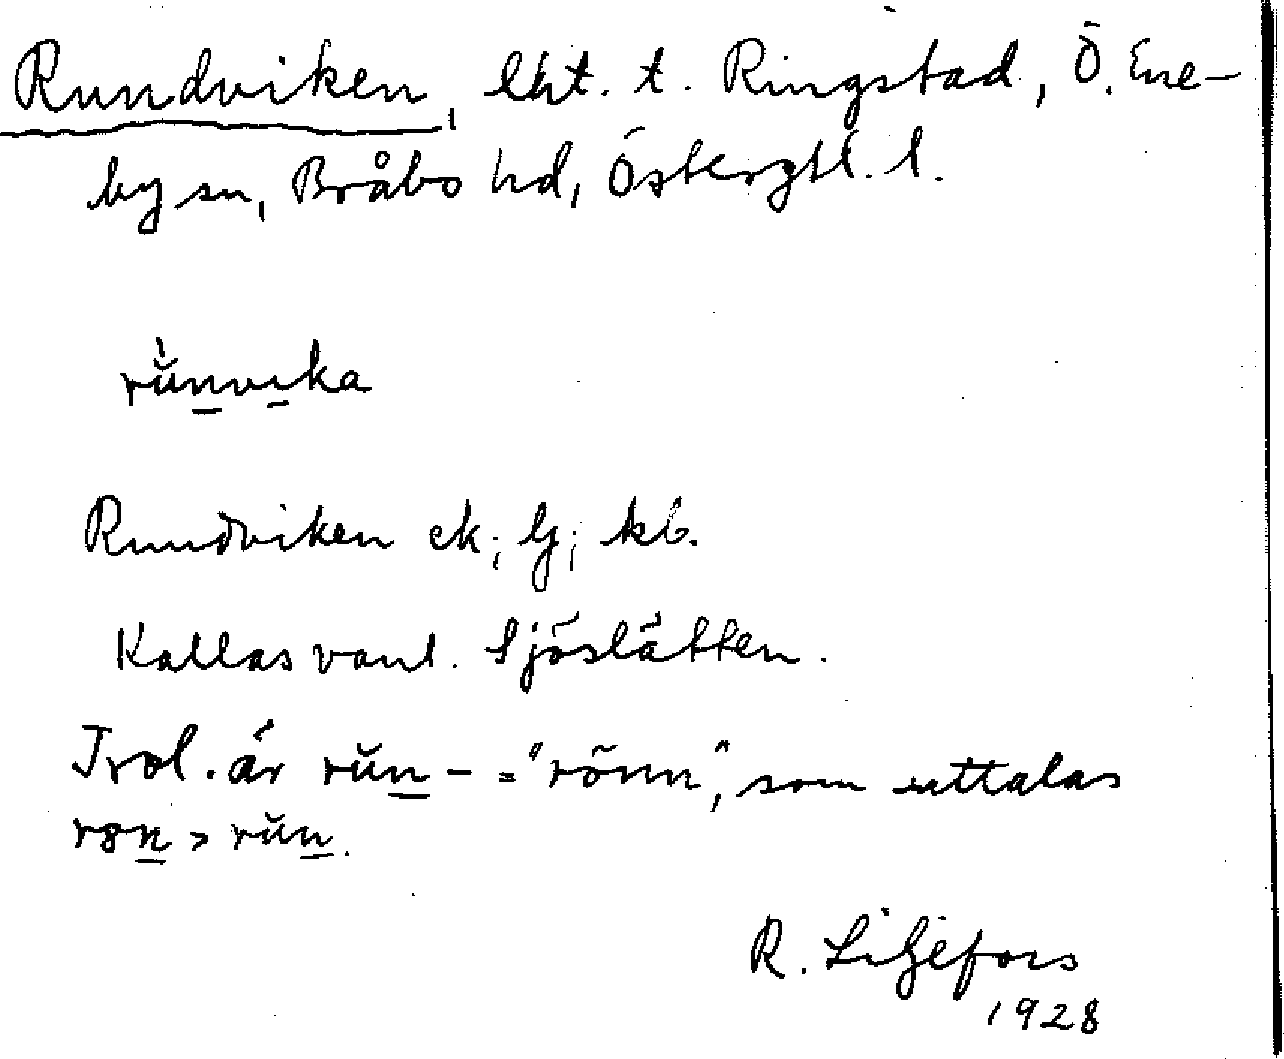 Rundviken, lht. t. Ringstad, Ö. Ene-
by sn, Bråbo hd, Östergtl. l.
rŭnvika
Rundviken ek; lj; kb.
Kallas vanl. Sjöslätten.
Trol. är rŭn- = "rönn", som uttalas
r8n > rŭn.
R. Liljefors
1928